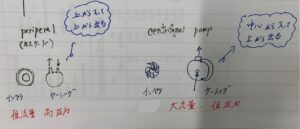 peripheral
(カスケード)
上から入って
上から出る
インペラ
ケーシング
低流量 高圧力
centrifugal pump
中心から入って
上から出る
インペラ
ケーシング
大流量、低圧力